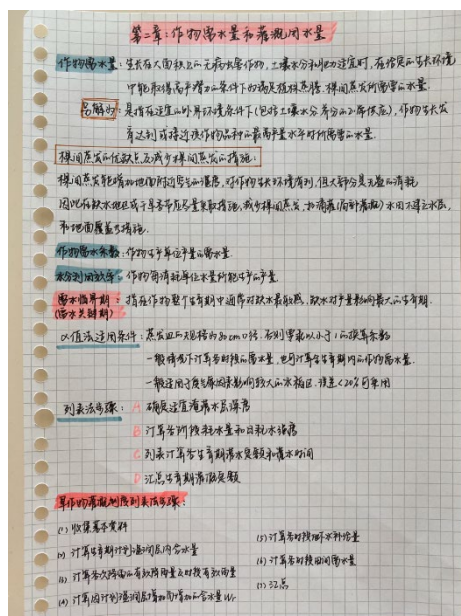 第二章：作物需水量和灌溉用水量
作物需水量：生长在大面积上的无病虫害作物，土壤水分和肥力适宜时，在给定的生长环境
中能取得高产潜力的条件下为满足植株蒸腾、棵间蒸发所需要的水量。
易解为：是指在适宜的外界环境条件下（包括土壤水分养分的供应），作物生长发
育达到或接近该作物品种的最高产量水平时所需要的水量。
棵间蒸发的优缺点及减少棵间蒸发的措施：
棵间蒸发能增加地面附近空气的湿度，对作物生长环境有利，但大部分是无益的消耗
因此在缺水地区或干旱季节应尽量采取措施，减少棵间蒸发，如滴灌（局部灌溉）水田不建立水层，
和地面覆盖等措施。
作物需水系数：作物生产单位产量的需水量
水分利用效率：作物每消耗单位水量所能生产的产量
需水临界期：指在作物整个生育期中通常对缺水最敏感，缺水对产量影响最大的生育期。
(需水关键期)
α值法适用条件：蒸发皿的规格为80cm口径，否则要乘以小于1的换算系数
一般情况下计算各时段的需水量，也可计算全生育期内的作物需水量。
一般适用于受气象因素影响较大的水稻区，误差<20%可采用
列表法步骤： A 确定适宜灌水上下限
B 计算各阶段耗水量和日耗水强度
C 列表计算各生育期灌水定额和灌水时间
D 汇总生育期灌溉定额
旱作物灌溉制度列表法步骤：
(1) 收集基本资料
(2) 计算生育期计划湿润层内含水量
(3) 计算各次降雨的有效降雨量及时段有效雨量
(4) 计算因计划湿润层增加而增加的含水量Wr
(5) 计算各时段地下水补给量
(6) 计算各时段田间需水量
(7) 汇总